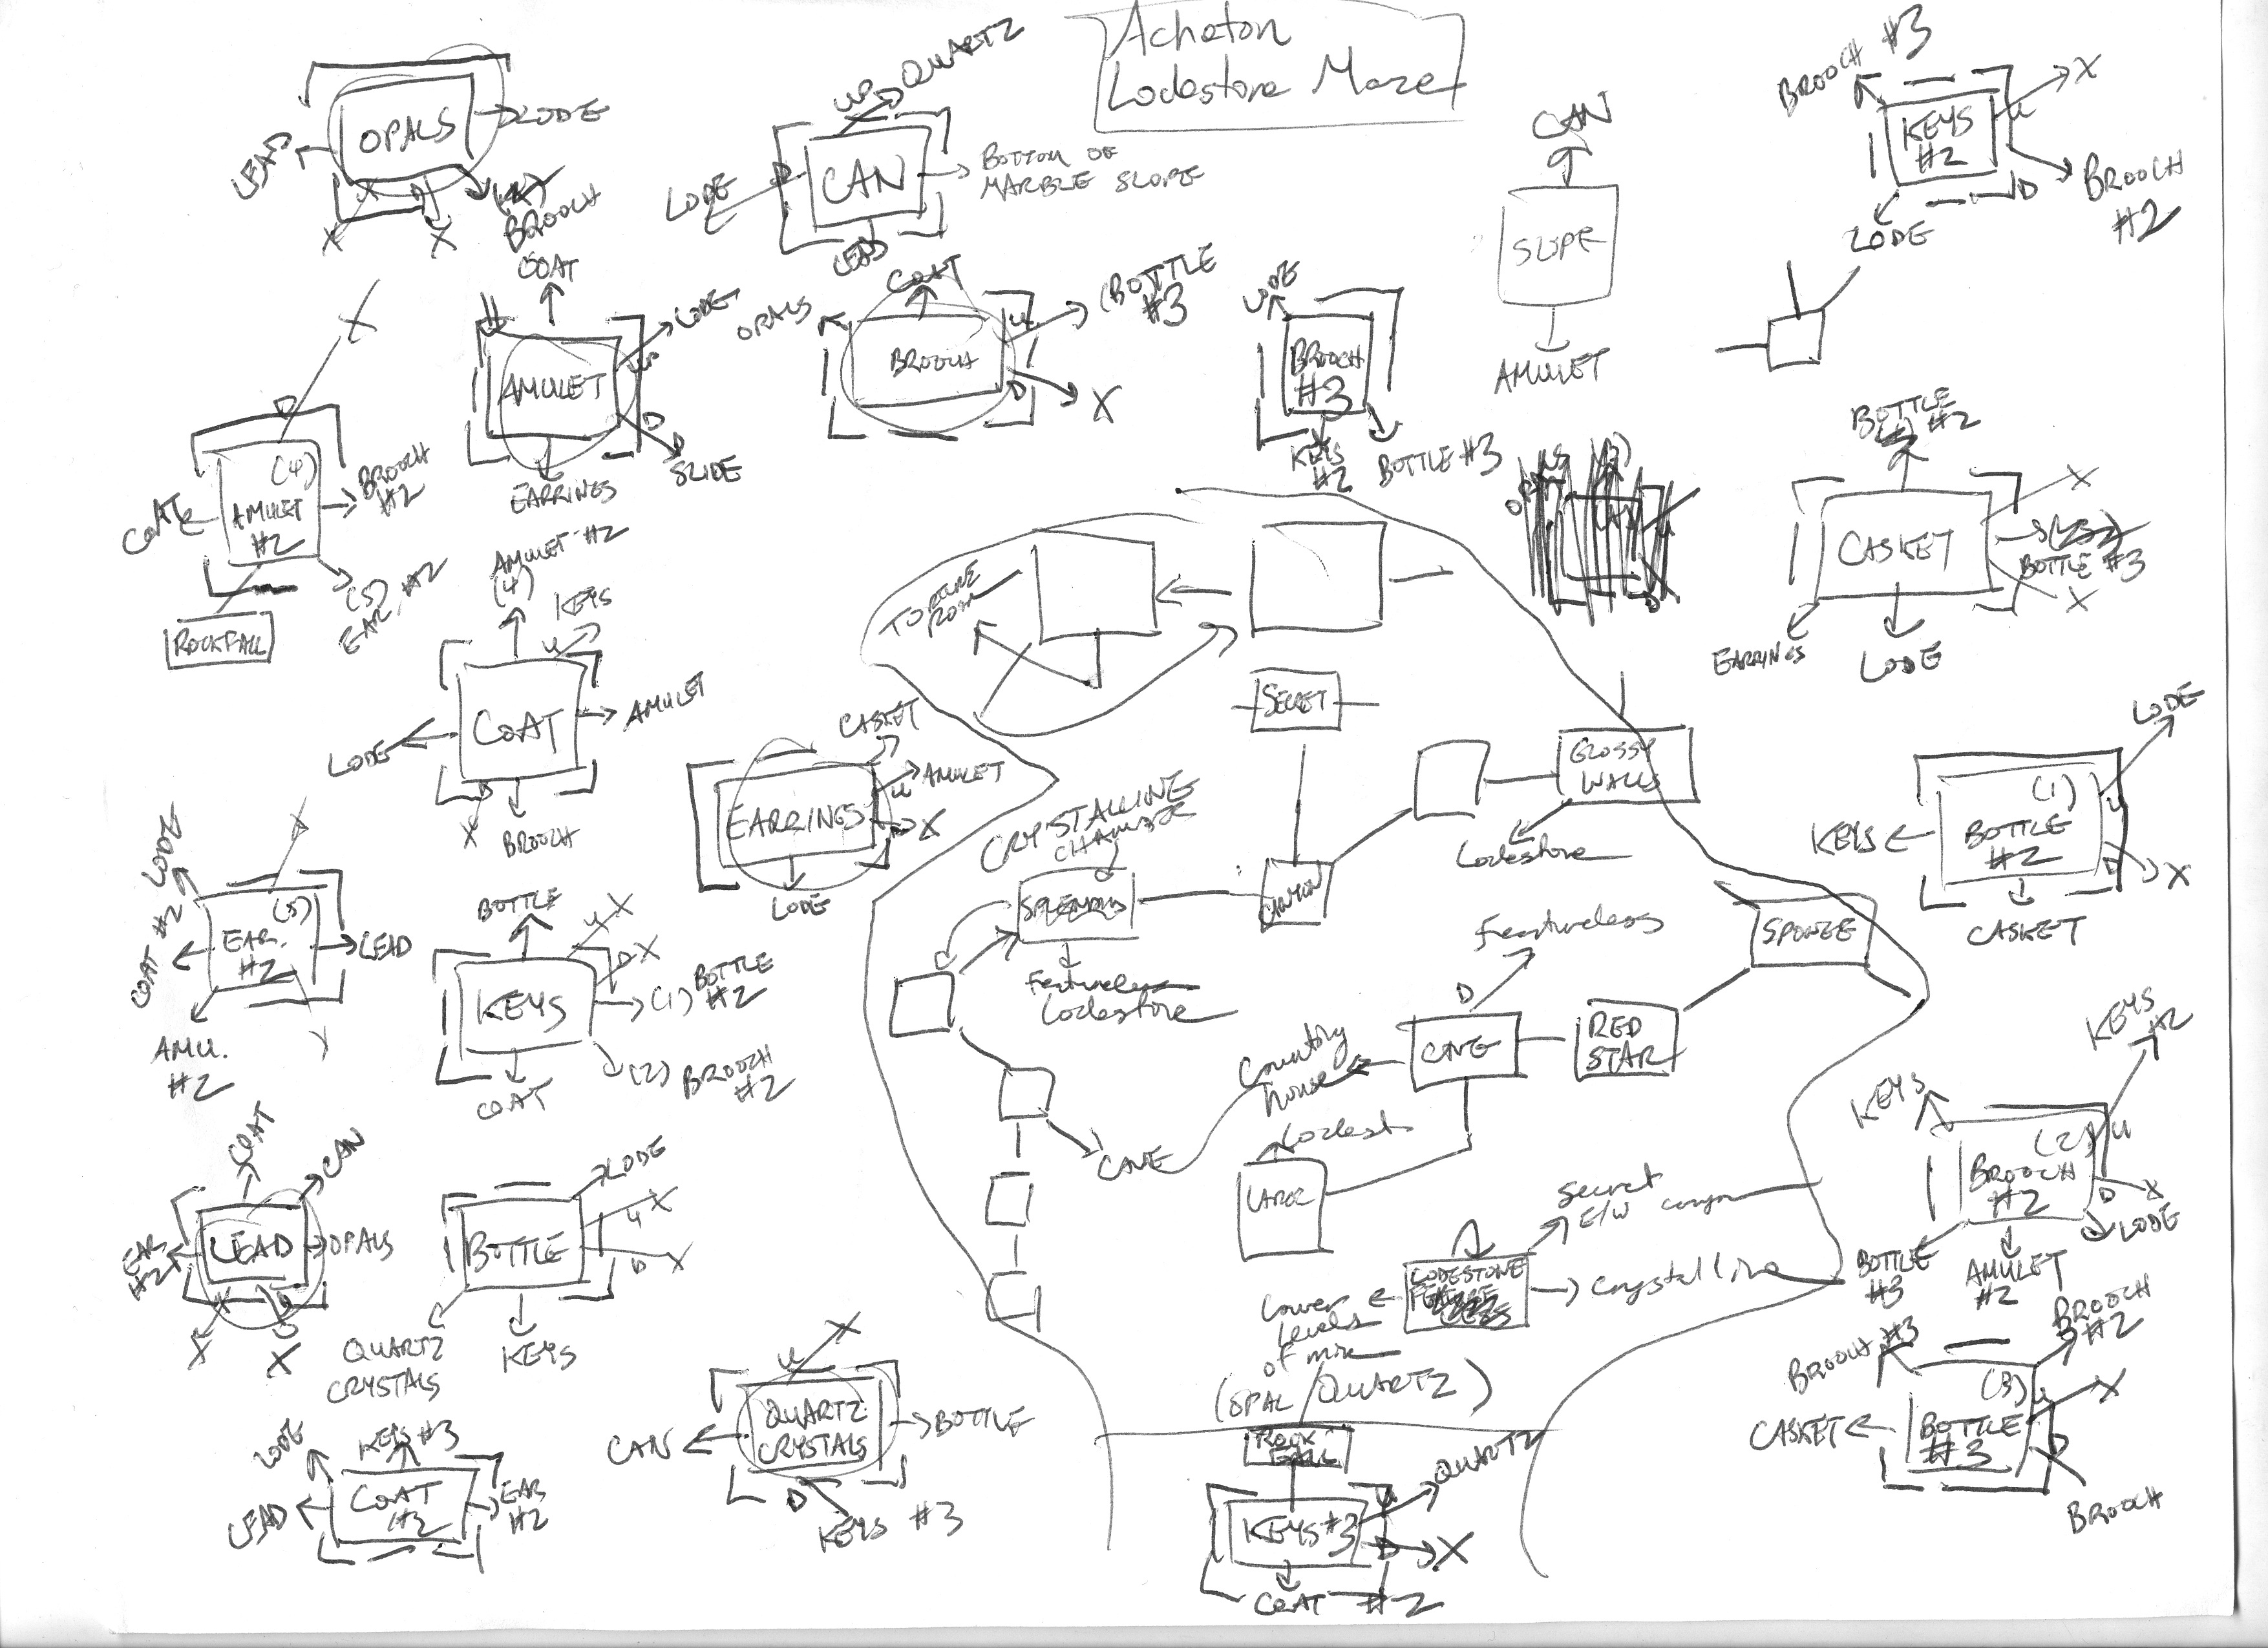 Acheton
Lodestone Maze
OPALS
LODE
LEAD
X
X
D
BROOCH
UP
QUARTZ
CAN
LODE
BOTTOM OF
MARBLE SLOPE
LEAD
D
CAN
SLOPE
AMULET
BROOCH #3
KEYS
#2
X
U
BROOCH
#2
D
LODE
COAT
AMULET
LODE
UP
D
SLIDE
EARRINGS
COAT
OPALS
BROOCH
U
(BOTTLE
#3
D
X
LODE
BROOCH
#3
KEYS
#2
BOTTLE #3
X
D
(4)
AMULET
#2
COAT
BROOCH
#2
(5)
EAR. #2
ROCKFALL
BOTTLE
#2
CASKET
X
BOTTLE #3
X
EARRINGS
LODE
AMULET #2
(4)
KEYS
U
COAT
LODE
AMULET
D
X
BROOCH
TORTURE
ROOM
SECRET
GLOSSY
WALLS
Lodestone
CASKET
EARRINGS
U
AMULET
D
X
LODE
CRYSTALLINE
CHAMBER
SPLENDID
CANYON
Featureless
Lodestone
LODE
(1)
BOTTLE
#2
KEYS
U
D
X
CASKET
LODE
X
(5)
EAR.
#2
COAT #2
LEAD
AMU.
#2
BOTTLE
U X
D X
KEYS
(1) BOTTLE
#2
(2) BROOCH
#2
COAT
Featureless
SPONGE
D
CAVE
RED
STAR
Counting
house
Lodest
LARGE
CAVE
KEYS
#2
KEYS
(2)
BROOCH
#2
U
D
X
LODE
BOTTLE
#3
AMULET
#2
COAT
CAN
LEAD
OPALS
EAR
#2
X
X
LODE
BOTTLE
U X
D X
QUARTZ
CRYSTALS
KEYS
Secret
E/W canyon
LODESTONE
Crystalline
Lower
levels
of mine
(OPAL/QUARTZ)
BROOCH #3
BROOCH
#2
(3)
BOTTLE
#3
U
X
CASKET
D
BROOCH
X
U
QUARTZ
CRYSTALS
CAN
BOTTLE
D
KEYS #3
LODE
KEYS #3
COAT
#2
LEAD
EAR
#2
ROCK
FALL
KEYS #3
U
QUARTZ
D
X
COAT #2